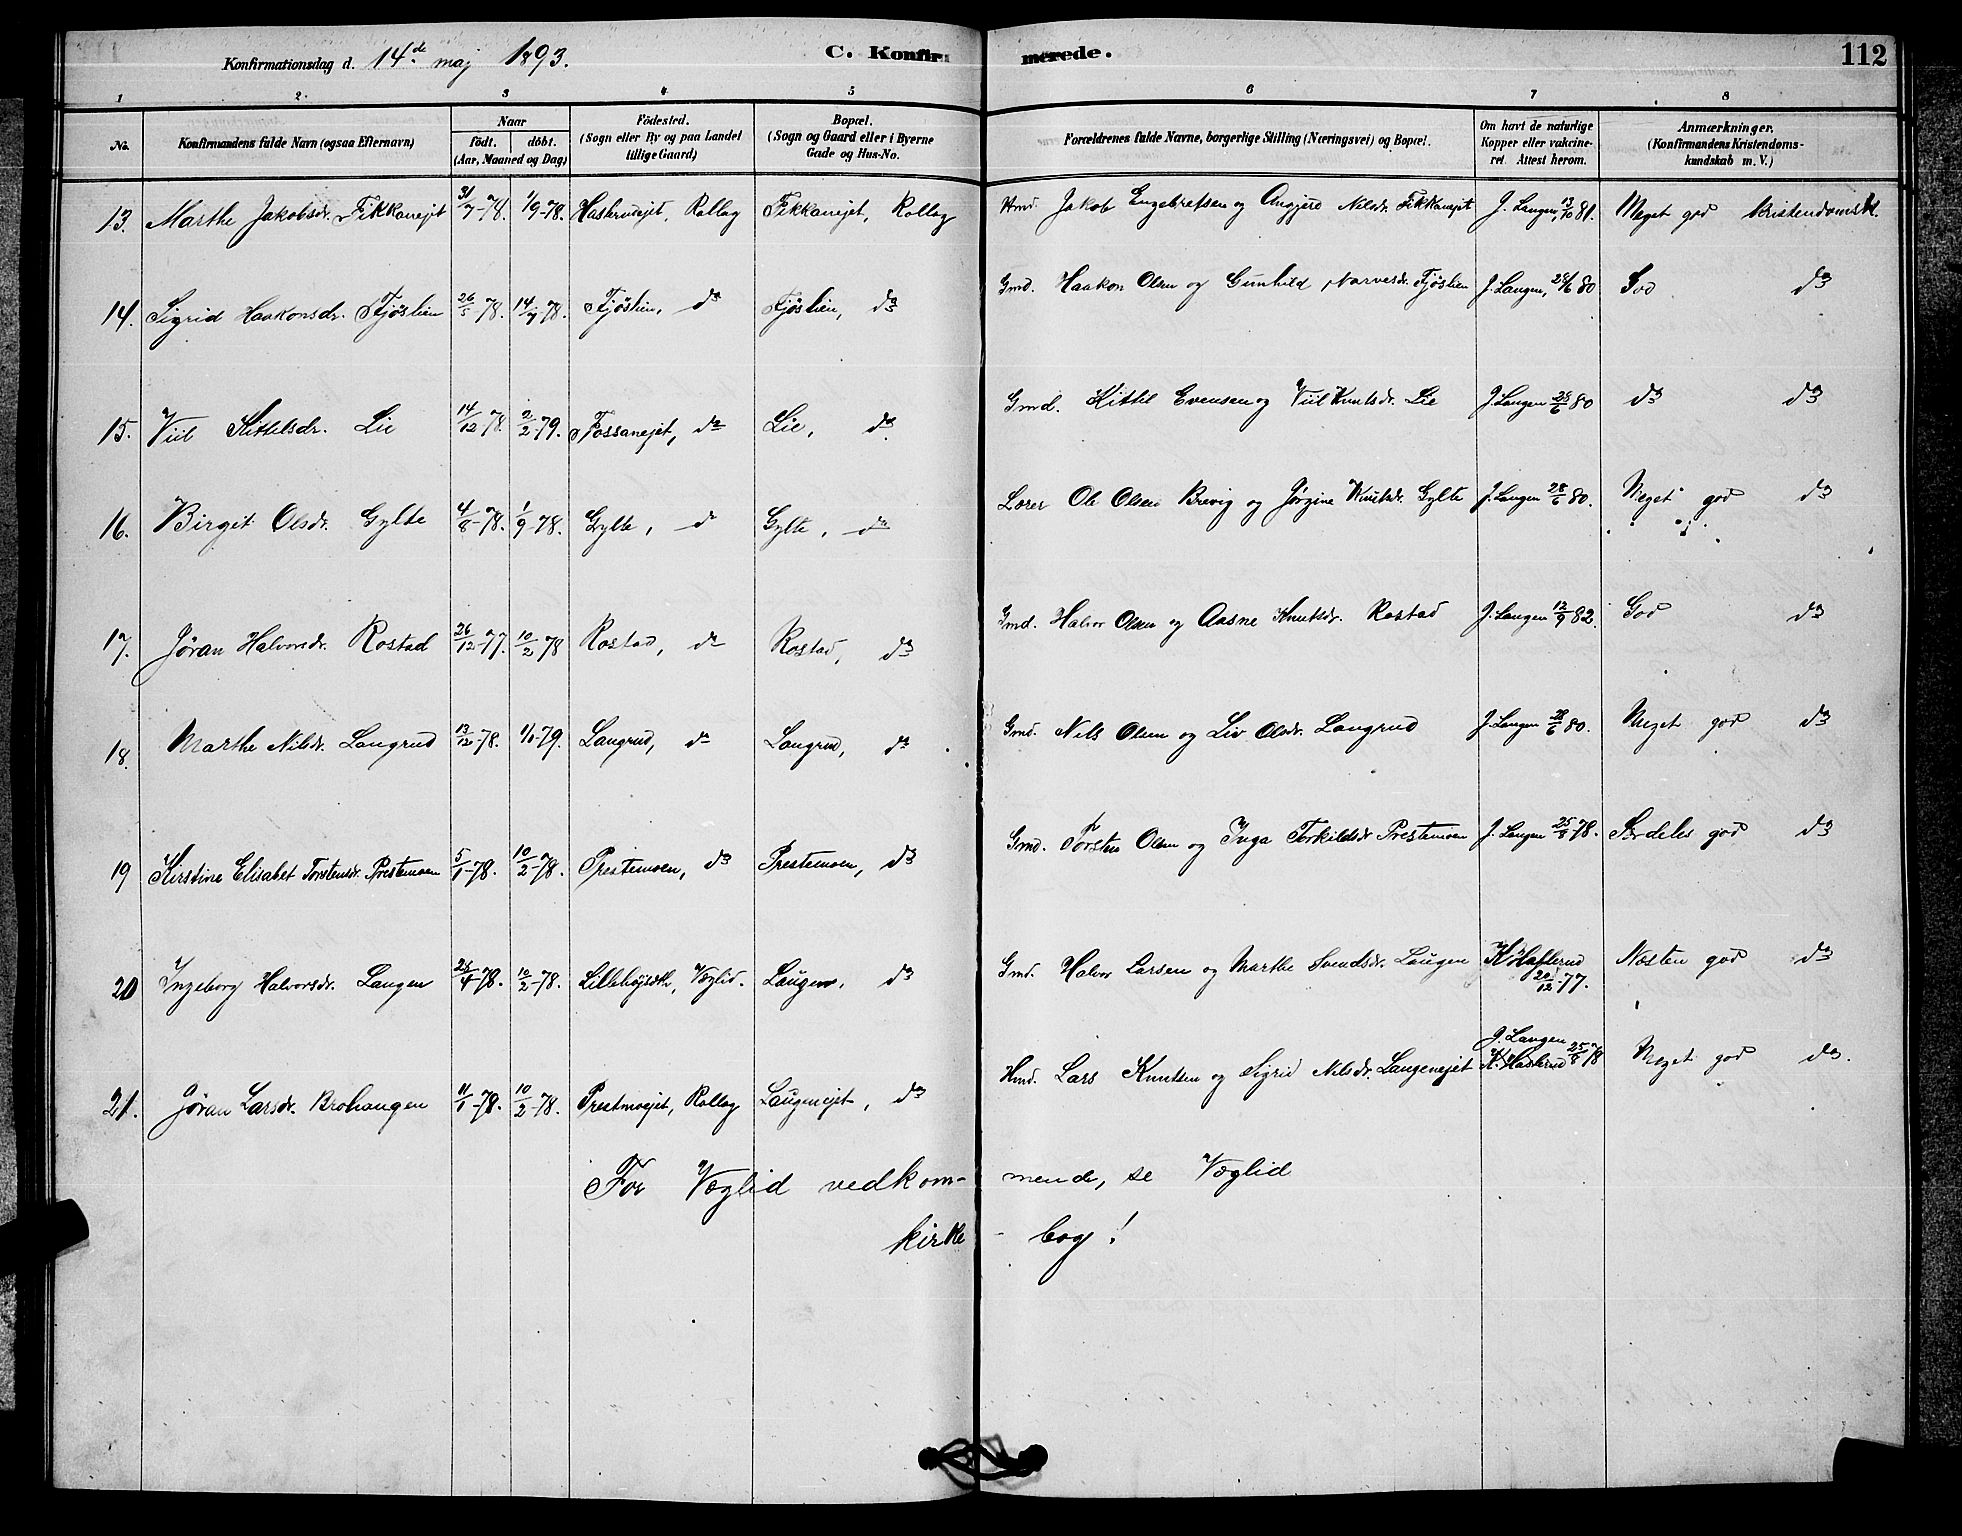 Konfirmationsdag d. 14de maj 1893. C. Konfirmerede. 112
1 2 3 4 5 6 7 8
No. Konfirmandens fulde Navn (ogsaa Efternavn) Naar født. døbt. (Aar, Maaned og Dag) Fødested. (Sogn eller By og paa Landet tillige Gaard) Bopæl. (Sogn og Gaard eller i Byerne Gade og Hus-No. Forældrenes fulde Navne, borgerlige Stilling (Næringsvei) og Bopæl. Om havt de naturlige Kopper eller vakcineret. Attest herom. Anmærkninger. (Konfirmandens Kristendomskundskab m. V.)
13. Marthe Jakobsdr. Fikkanejet 31/7-78. 1/9-78. Haslerudejet, Rollag Fikkanejet, Rollag Hmd. Jakob Engebretsen og Angjerd Nilsdr. Fikkanejet J. Langen, 13/10 81. Meget god Kristendomsk.
14. Sigrid Haakonsdr. Fjøslien 26/5-78. 14/7-78. Fjøslien, do Fjøslien, do Gmd. Haakon Olsen og Gunhild Narvesdr. Fjøslien J. Langen, 28/6 80 God do
15. Viil Kittilsdr. Lie 14/12 78. 2/2-79. Fossanejet, do Lie, do Gmd. Kittil Evensen og Viil Knutsdr. Lie J. Langen 28/6 80 do do
16. Birgit Olsdr. Gylte 4/8-78. 1/9-78. Gylte, do Gylte, do Lærer Ole Olsen Brevig og Jørgine Knutsdr. Gylte J. Langen 28/6 80. Meget god do
17. Jøran Halvorsdr. Rostad 26/12-77. 10/2-78 Rostad, do Rostad, do Gmd. Halvor Olsen og Aasne Knutsdr. Rostad J. Langen 12/9 82. God do
18. Marthe Nilsdr. Langrud 13/12-78. 1/1-79. Langrud, do Langrud, do Gmd. Nils Olsen og Liv Olsdr. Langrud J. Langen 28/6 80. Meget god do
19 Kirstine Elisabet Torstensdr. Prestemoen 5/1-78. 10/2-78. Prestemoen, do Prestemoen, do Gmd. Torsten Olsen og Inga Torkildsdr Prestemoen J. Langen 25/8 78. Særdeles god do
20 Ingeborg Halvorsdr. Langen /4-78. 10/2-78. Væglid. Laugen, do Gmd. Halvor Larsen og Marthe Svendsdr. Laugen K. Haslerud 20/12-77. Næsten god do
21. Jøran Larsdr. Brohaugen 11/1-78. 10/2-78. Prestmoejet, Rollag Laugenejet, do Hmd. Lars Knutsen og Sigrid Nilsdr. Langenejet J. Langen K. Haslerud 25/8 78 Meget god do.
For Væglid vedkommende, se Væglid
kirkebog!